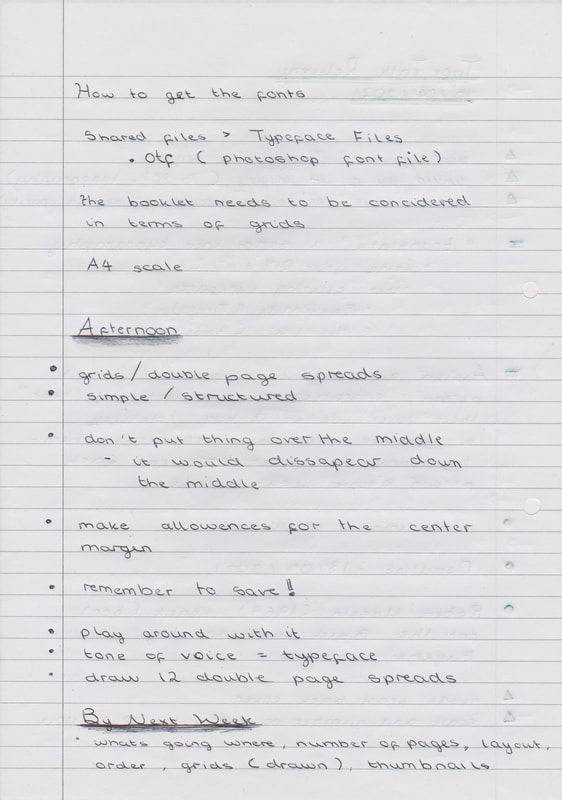 How to get the fonts
Shared files > Typeface Files
• Otf ( photoshop font file )
The booklet needs to be concidered
in terms of grids
A4 scale
Afternoon
• grids / double page spreads
• simple / structured
• don't put thing over the middle
- it would dissapear down
the middle
• make allowences for the center
margin
• remember to save!!
• play around with it
• tone of voice = typeface
• draw 12 double page spreads
By Next Week
• whats going where, number of pages, layout,
order, grids ( drawn ), thumbnails